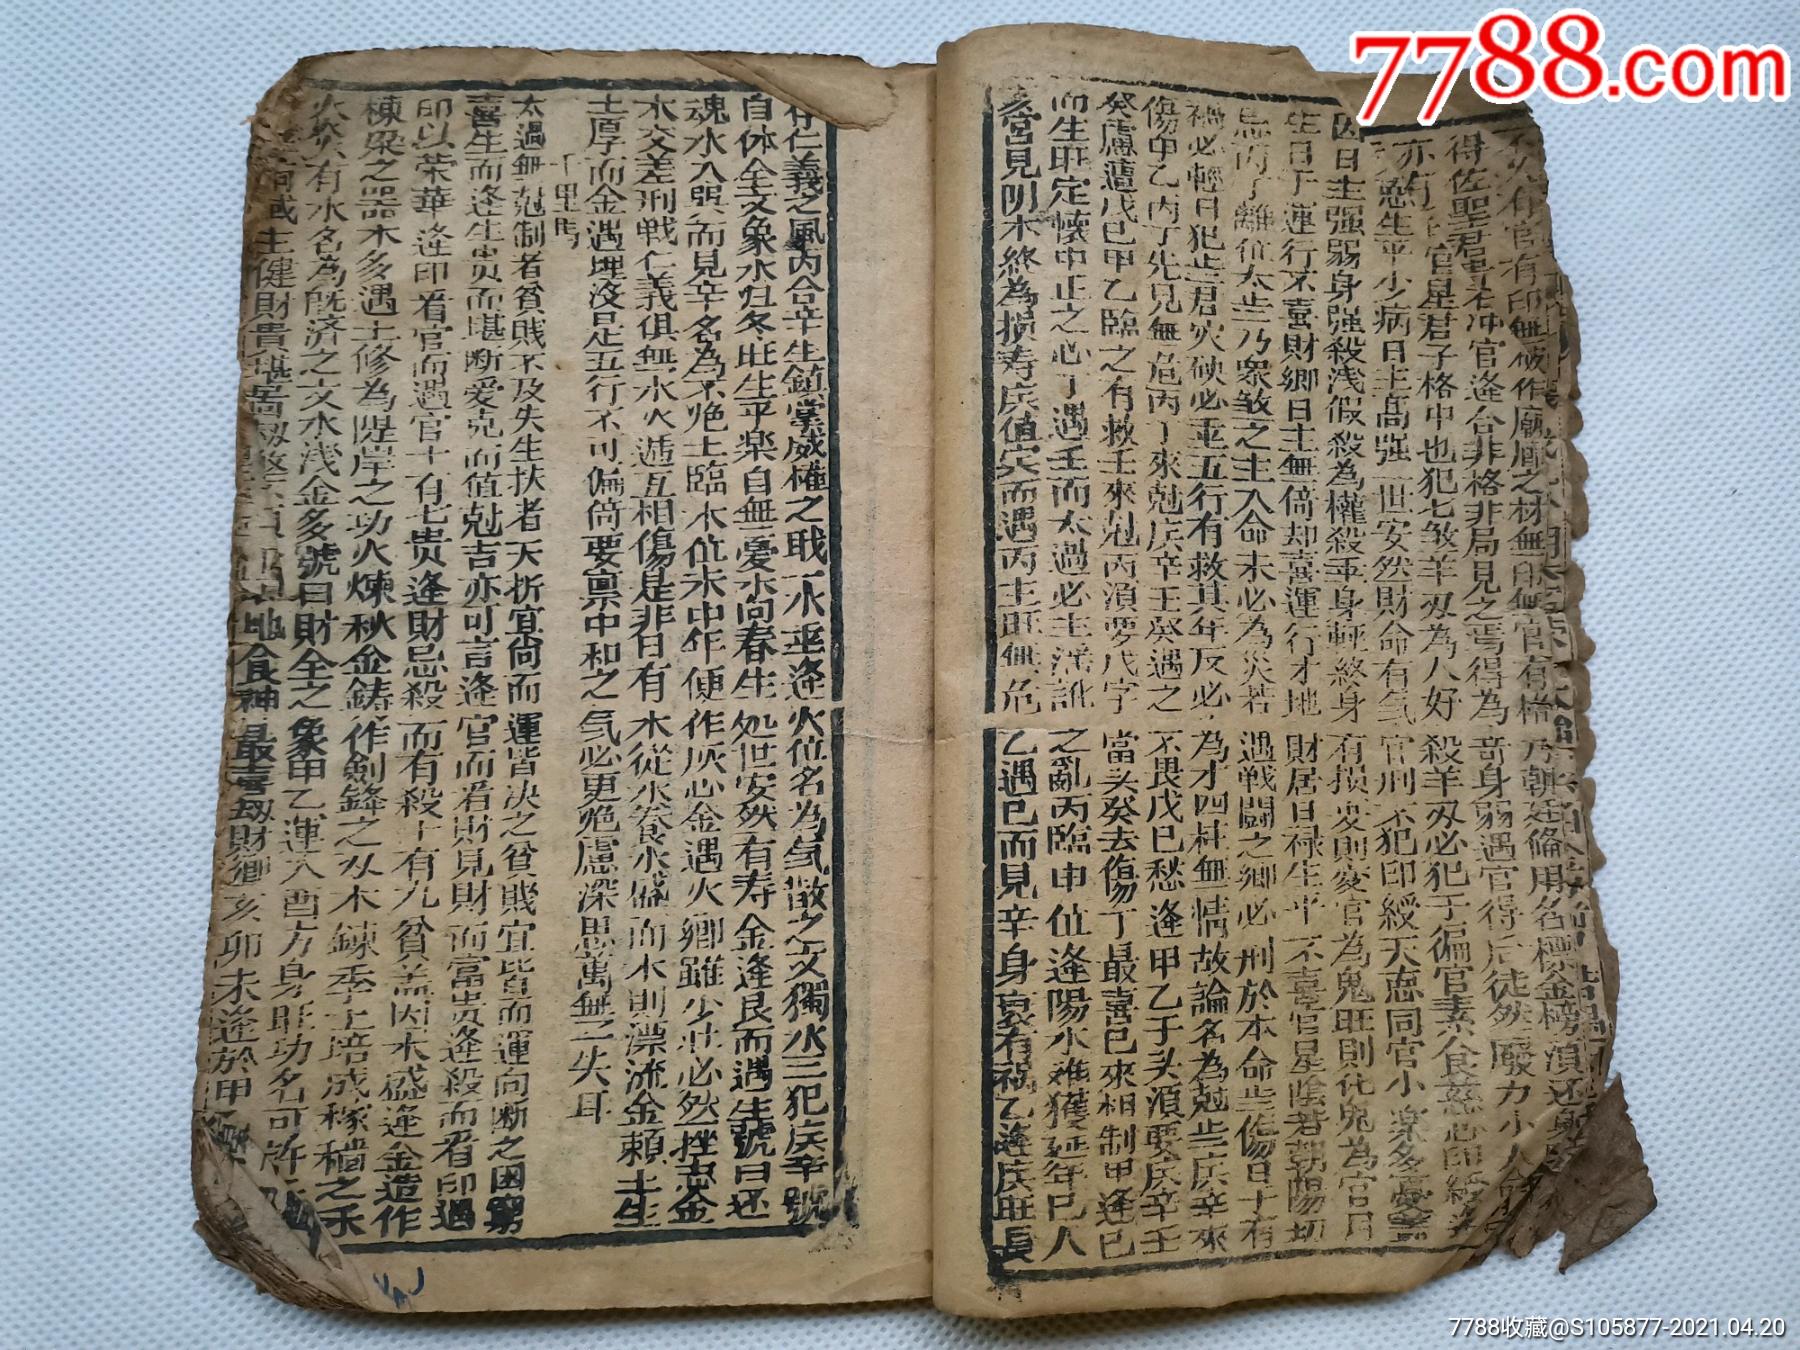 7788.com
有官有印無破作廟廊之材無印無官有格乃朝廷俻用名標金榜湏还身
得佐聖君貴在冲官逢合非格非局見之焉得為竒身弱遇官得后徒然廢力小人命
亦有官星君子格中也犯七煞羊刄為人好殺羊刄必犯于徧官素食慈心印綬
天德生平少病日主高强一世安然財命有气官刑不犯印綬天德同官小楽多憂盖
因日主强弱身强殺浅假殺為權殺重身輊終身有損衰則変官為鬼旺則化鬼為官月
生日于運行不喜財鄉日主無倚却喜運行才地財居日禄生平不喜官星陰若朝陽切
忌丙丁離位太些乃衆煞之主入命未必為災若遇戦闘之鄉必刑於本命些傷日十有
禍必輕日犯些君災殃必重五行有救其年反必為才四柱無情故論名為尅些庚辛來
傷甲乙丙丁先見無危丙丁來尅庚辛壬癸遇之不畏戊巳愁逢甲乙于头湏要庚辛壬
癸慮遭戊巳甲乙臨之有救壬來尅丙湏要戊字當头癸去傷丁最喜巳來相制甲逢巳
而生旺定懷中正之心丁遇壬而太過必主淫訛之亂丙臨申位逢陽水难獲延年巳人
亥宮見阴木終為損寿庚值寅而遇丙主旺無危乙遇巳而見辛身衰有禍乙逢庚旺長
存仁義之風丙合辛生鎮掌威權之職一水重逢火位名為气散之文獨水三犯庚辛號
自体全文象水归冬旺生平楽自無憂水向春生処世安然有寿金逢艮而遇生號曰还
魂水入巽而見辛名為不绝土臨木位未中年便作灰心金遇火鄉雖少壮必然挫志金
木交差刑戦仁義俱無水火遞互相傷是非日有水從水養水盛而木則漂流金賴土生
土厚而金遇埋没是五行不可偏倚要禀中和之气必更绝慮深思萬無一失耳
千里馬
太過無尅制者貧賎不及失生扶者天折宜尙而運皆决之貧賎宜皆而運向断之困窮
喜生而逢生贵而堪断爱克而值尅吉亦可言逢官而看財見財而富贵逢殺而看印遇
印以荣華逢印看官而遇官十有七贵逢財忌殺而有殺十有九貧盖因木盛逢金造作
棟梁之器木多遇土修為隄岸之功火煉秋金鋳作劍鋒之刄木鍊季土培成稼穡之禾
火炎有水名為旣济之文水浅金多號曰財全之象甲乙運入酉方身旺功名可許
主健財貴堪 地食神最喜刼財鄉亥卯未逢於甲
7788收藏@S105877-2021.04.20